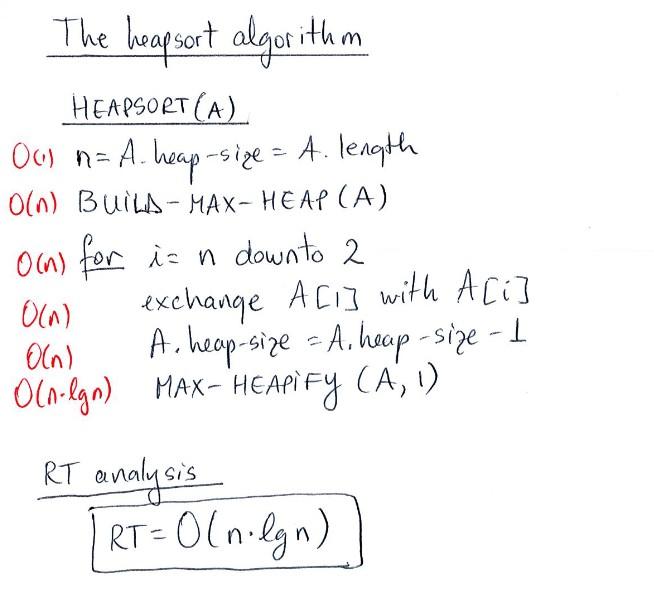 The heapsort algorithm
HEAPSORT(A)
O(1) n = A.heap-size = A.length
O(n) BUILD-MAX-HEAP(A)
O(n) for i = n downto 2
O(n) exchange A[1] with A[i]
O(n) A.heap-size = A.heap-size - 1
O(n·lgn) MAX-HEAPIFY (A, 1)
RT analysis
RT = O(n·lgn)